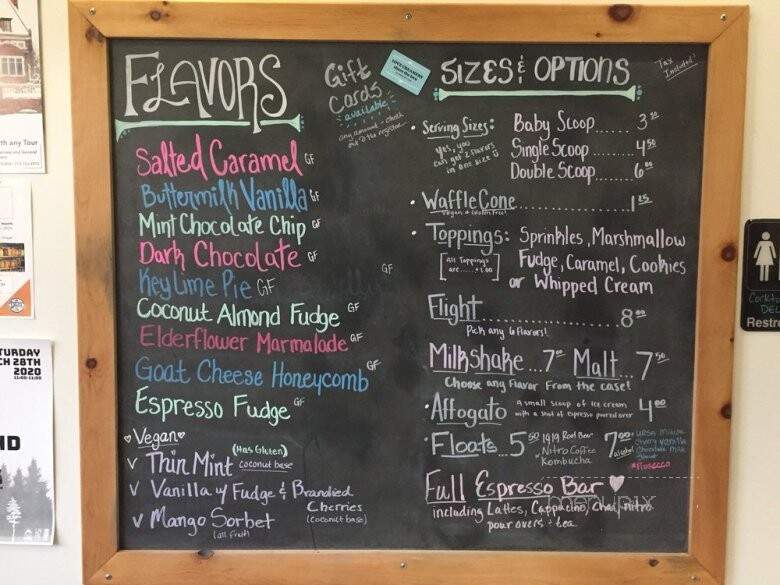 FLAVORS
Salted Caramel GF
Buttermilk Vanilla GF
Mint Chocolate Chip GF
Dark Chocolate GF
Key Lime Pie GF
GF
Coconut Almond Fudge GF
Elderflower Marmalade GF
Goat Cheese Honeycomb GF
Espresso Fudge GF
Vegan
v Thin Mint (Has Gluten) coconut base
v Vanilla w/ Fudge & Brandied
Cherries
(coconut base)
v Mango Sorbet
(all fruit)
Gift
Cards
available
any amount - check
out @ the register
SIZES & OPTIONS
Tax
Included
• Serving Sizes:
yes, you
can get 2 flavors
in one size
Baby Scoop..... 3 50
Single Scoop..... 4 50
Double Scoop...... 6 00
• Waffle Cone.............. 1 25
Vegan & Gluten Free!
• Toppings: Sprinkles, Marshmallow
Fudge, Caramel, Cookies
or Whipped Cream
All Toppings
are..... +1.00
Flight................... 8 00
Pick any 6 flavors!
Milkshake...7 00 Malt...7 50
Choose any flavor from the case!
• Affogato A small scoop of ice cream
with a shot of espresso poured over 4 00
• Floats 5 50 1919 Root Beer
Nitro Coffee
Kombucha
7 00 alcohol
cherry vanilla
Chocolate Milk
Stout
*Prosecco
Full Espresso Bar
including Lattes, Cappucino, Chai, nitro
pour overs + tea
th any Tour
TURDAY
CH 28TH
2020
ND
Restr